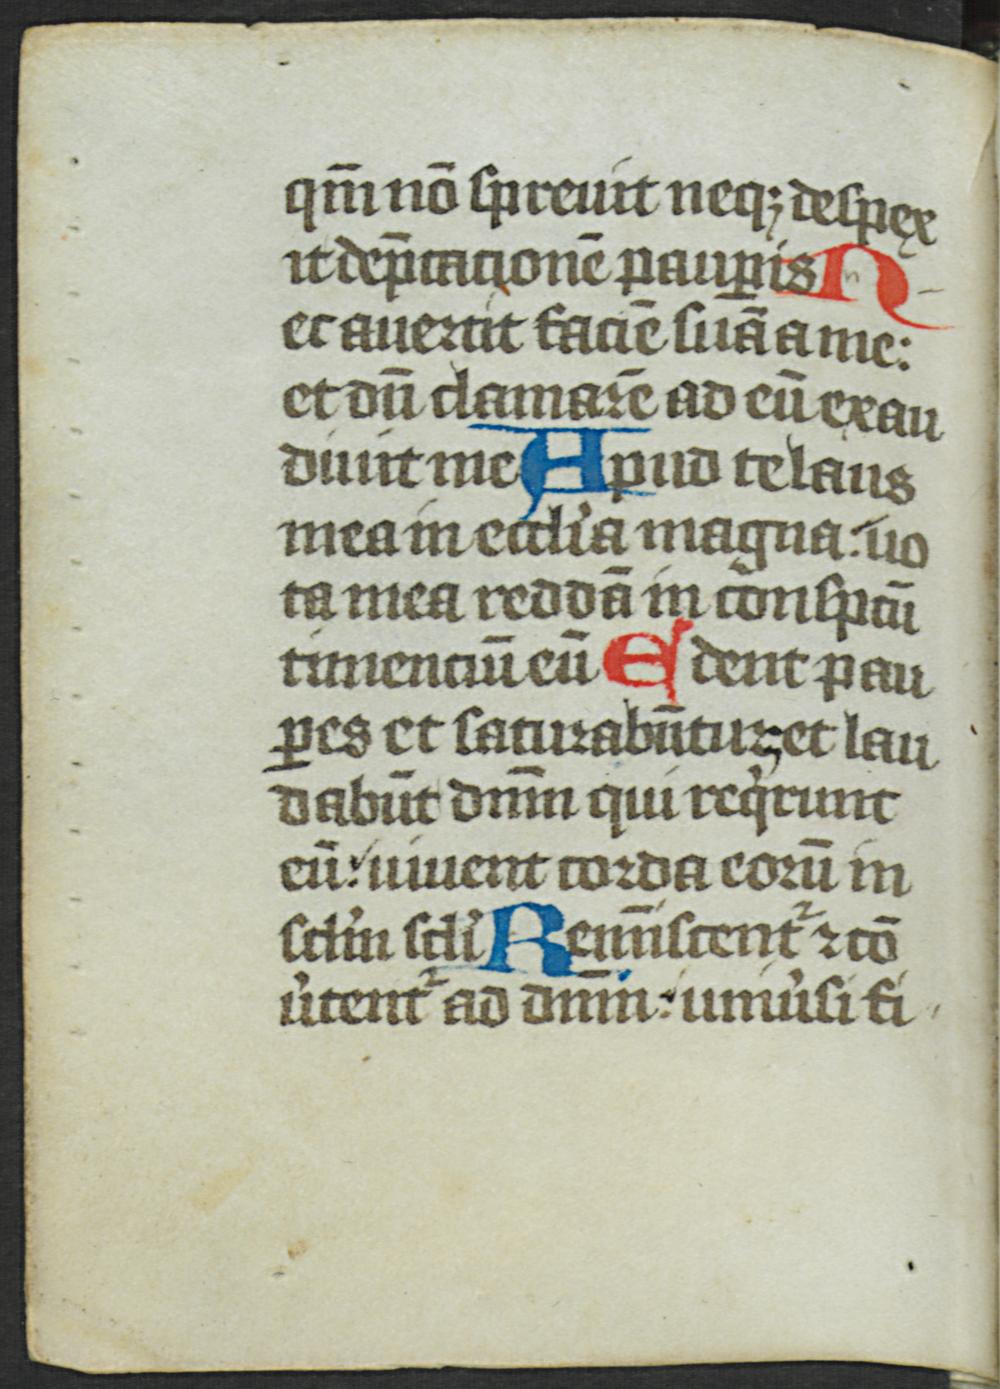 qm̄ nō spreuit neqꝫ despex
it dep̄catōnē paup̱is N
ec auertit faciē suā a me:
et dū clamarē ad eū exau
diuit me Apud te laus
mea in eccl'ia magna: uo
ta mea reddā in cōnspectū
timenciū eū Edent pau
ꝑes et saturabūtur et lau
dabūt dnm̄ qui req'runt
eū: uiuent corda eorū in
scl'm scl'i Remīscent² ⁊ cō
u'tent² ad dnm̄: uniu'si fi